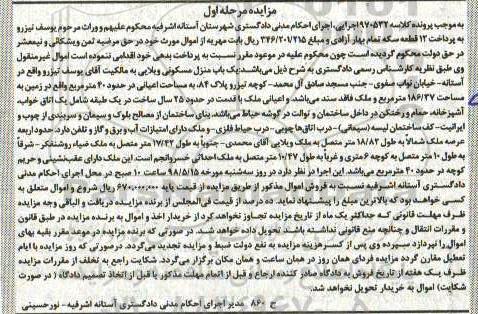 مزایده مرحله اول
به موجب پرونده کلاسه ۹۷۰۵۳۲ اجرایی، اجرای احکام مدنی دادگستری شهرستان آستانه اشرفیه محکوم علیهم و وراث مرحوم یوسف تیزرو
به پرداخت ۱۲ قطعه سکه تمام بهار آزادی و مبلغ ۳۴۶/۲۰۱/۲۱۵ ریال بابت مهریه از اموال مورث خود در حق مرضیه ثمن ویشکائی و نیمعشر
در حق دولت محکوم گردیده است چون محکوم علیه در موعود مقرر نسبت به پرداخت بدهی خود اقدامی ننموده است اموال غیرمنقول
وی طبق نظریه کارشناس رسمی دادگستری به شرح ذیل می‌باشند:یک باب منزل مسکونی ویلایی به مالکیت آقای یوسف تیزرو واقع در
آستانه - خیابان نواب صفوی - جنب مسجد صادق آل محمد - کوچه تیزرو پلاک ۸۴، به مساحت اعیانی در حدود ۴۰ مترمربع واقع در زمین به
مساحت ۱۸۶/۳۷ مترمربع و ملک فاقد سند می‌باشد و اعیانی ملک با قدمت در حدود ۲۵ سال ساخت در یک طبقه شامل یک اتاق خواب،
آشپزخانه، حمام و رختکن در داخل ساختمان و توالت در گوشه حیاط می‌باشد. بنای ساختمان از مصالح بلوک و سیمان و سربندی از چوب و
ایرانیت - کف ساختمان لیسه (سیمانی) - درب اتاق‌ها چوبی - درب حیاط فلزی - و ملک دارای امتیازات آب و برق و گاز و تلفن دارد. حدود اربعه
عرصه ملک: شمالاً به طول ۱۸/۸۲ متر متصل به ملک ویلایی آقای محمدی - جنوبا به طول ۱۷/۳۲ متر متصل به ملک ضیاء روشنفکر - شرقاً
به طول ۱۰ متر متصل به کوچه ۶ متری و غرباً به طول ۱۰/۴۷ متر متصل به ملک احداثی خسروانجم است. این ملک دارای عقب‌نشینی و حریم
کوچه در حدود ۴۰ مترمربع می‌باشد. این اجرا در نظر دارد در روز سه‌شنبه مورخه ۹۸/۵/۱۵ ساعت ۱۰ صبح در محل اجرای احکام مدنی
دادگستری آستانه اشرفیه نسبت به فروش اموال مذکور از طریق مزایده از قیمت پایه ۶۷۰,۰۰۰,۰۰۰ ریال شروع و اموال متعلق به
کسی خواهد بود که بالاترین مبلغ را پیشنهاد نماید. ده درصد از قیمت فی‌المجلس از برنده مزایده دریافت و الباقی وجه مزایده
ظرف مهلت قانونی که حداکثر یک ماه از تاریخ مزایده تجاوز نخواهد کرد از خریدار اخذ و اموال به برنده مزایده در طبق قانون
و مقررات انتقال و چنانچه منع قانونی نداشته باشد تحویل داده خواهد شد. در صورتی که برنده مزایده در موعد مقرر بقیه بهای
اموال را نپردازد سپرده وی پس از کسر هزینه مزایده به نفع دولت ضبط و مزایده تجدید می‌گردد. درصورتی که روز مزایده با ایام
تعطیل مقارن گردد مزایده فردای همان روز در همان ساعت و همان مکان برگزار می‌گردد. شکایت راجع به تخلف از مقررات مزایده
ظرف یک هفته از تاریخ فروش به دادگاه صادر کننده ارجاع و قبل از اتمام مهلت مذکور یا قبل از اتخاذ تصمیم دادگاه ( در صورت
شکایت) اموال به خریدار تحویل نخواهد شد.
ح ۸۶۰ مدیر اجرای احکام مدنی دادگستری آستانه اشرفیه - نورحسینی